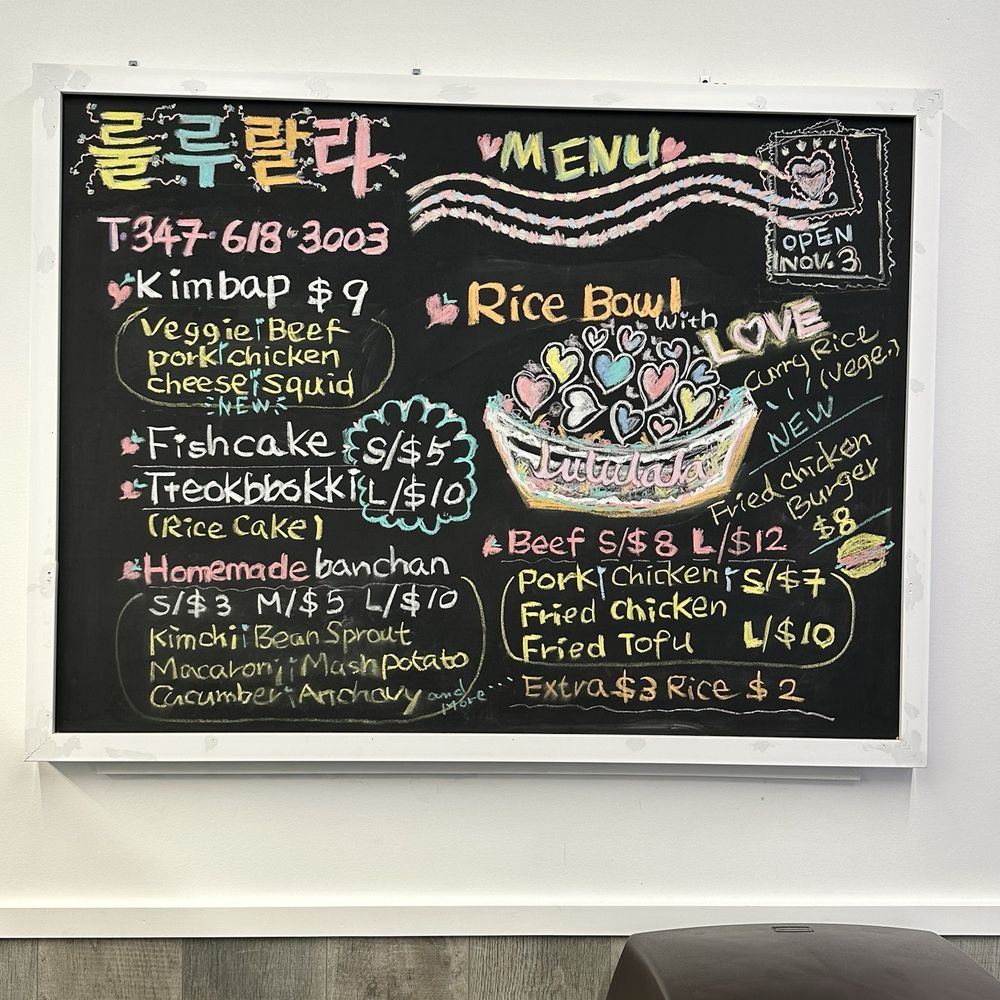 룰루랄라
MENU
T.347.618.3003
OPEN
NOV. 3
Kimbap $9
Veggie Beef
pork chicken
cheese squid
NEW
Fishcake
Tteokbbokki
(Rice Cake)
S/$5
L/$10
Homemade banchan
S/$3 M/$5 L/$10
Kimchi Bean Sprout
Macaroni Mash potato
Cucumber Anchovy and
More
Rice Bowl
with LOVE
Lululala
Curry Rice
(Vege.)
NEW
Fried chicken
Burger
$8
Beef S/$8 L/$12
Pork Chicken S/$7
Fried chicken
Fried Tofu L/$10
Extra $3 Rice $2